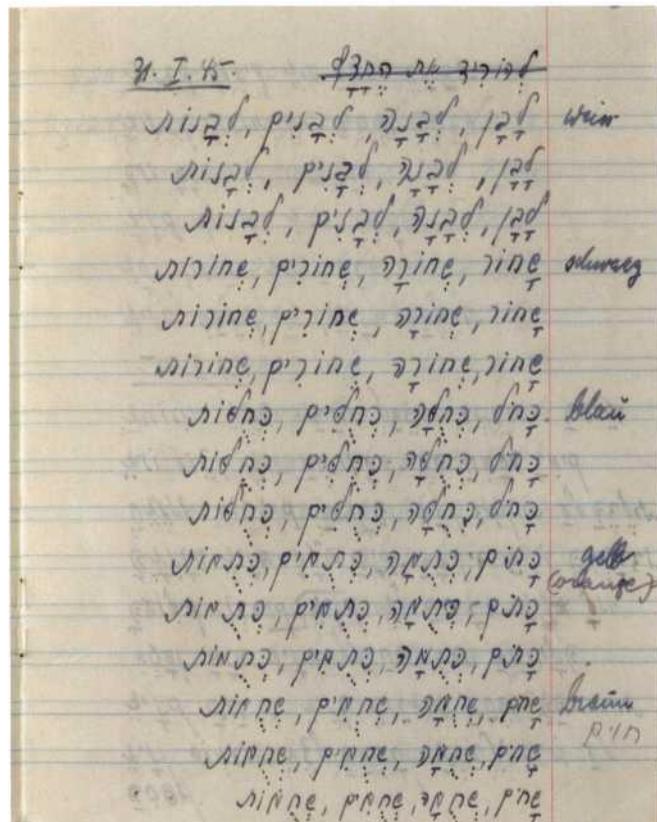 לְהוֹרִיד אֶת 31. I. 45.
לָבָן, לְבָנָה, לְבָנִים, לְבָנוֹת weiss
לָבָן, לְבָנָה, לְבָנִים, לְבָנוֹת
לָבָן, לְבָנָה, לְבָנִים, לְבָנוֹת
שָׁחוֹר, שְׁחוֹרָה, שְׁחוֹרִים, שְׁחוֹרוֹת schwarz
שָׁחוֹר, שְׁחוֹרָה, שְׁחוֹרִים, שְׁחוֹרוֹת
שָׁחוֹר, שְׁחוֹרָה, שְׁחוֹרִים, שְׁחוֹרוֹת
כָּחֹל, כְּחֻלָּה, כְּחֻלִּים, כְּחֻלּוֹת blau
כָּחֹל, כְּחֻלָּה, כְּחֻלִּים, כְּחֻלּוֹת
כָּחֹל, כְּחֻלָּה, כְּחֻלִּים, כְּחֻלּוֹת
כָּתֹם, כְּתֻמָּה, כְּתֻמִּים, כְּתֻמּוֹת gelb
(orange)
כָּתֹם, כְּתֻמָּה, כְּתֻמִּים, כְּתֻמּוֹת
כָּתֹם, כְּתֻמָּה, כְּתֻמִּים, כְּתֻמּוֹת
שָׁחֹם, שְׁחֻמָּה, שְׁחֻמִּים, שְׁחֻמּוֹת braun
חום
שָׁחֹם, שְׁחֻמָּה, שְׁחֻמִּים, שְׁחֻמּוֹת
שָׁחֹם, שְׁחֻמָּה, שְׁחֻמִּים, שְׁחֻמּוֹת